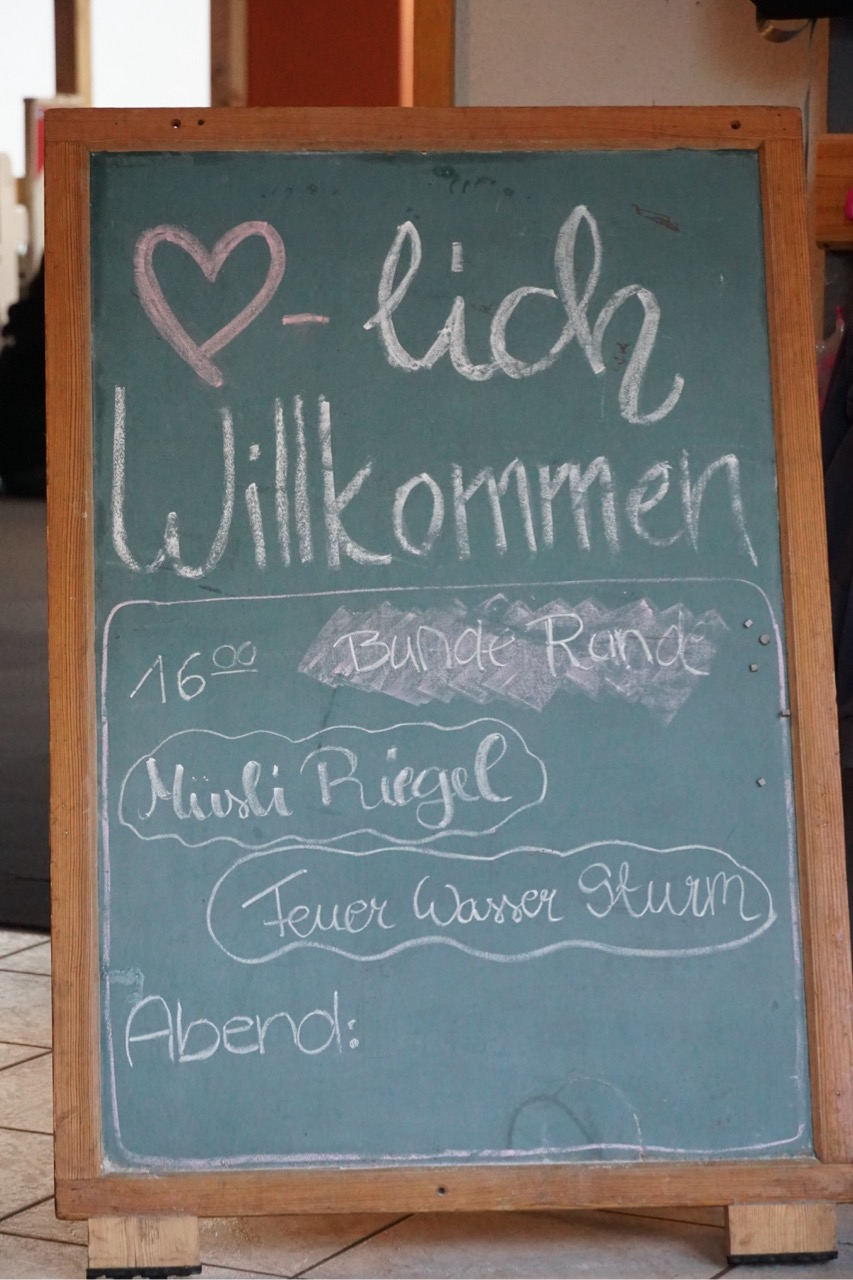 ♡-lich
Willkommen
16⁰⁰ Bunde Runde
Müsli Riegel
Feuer Wasser Sturm
Abend: